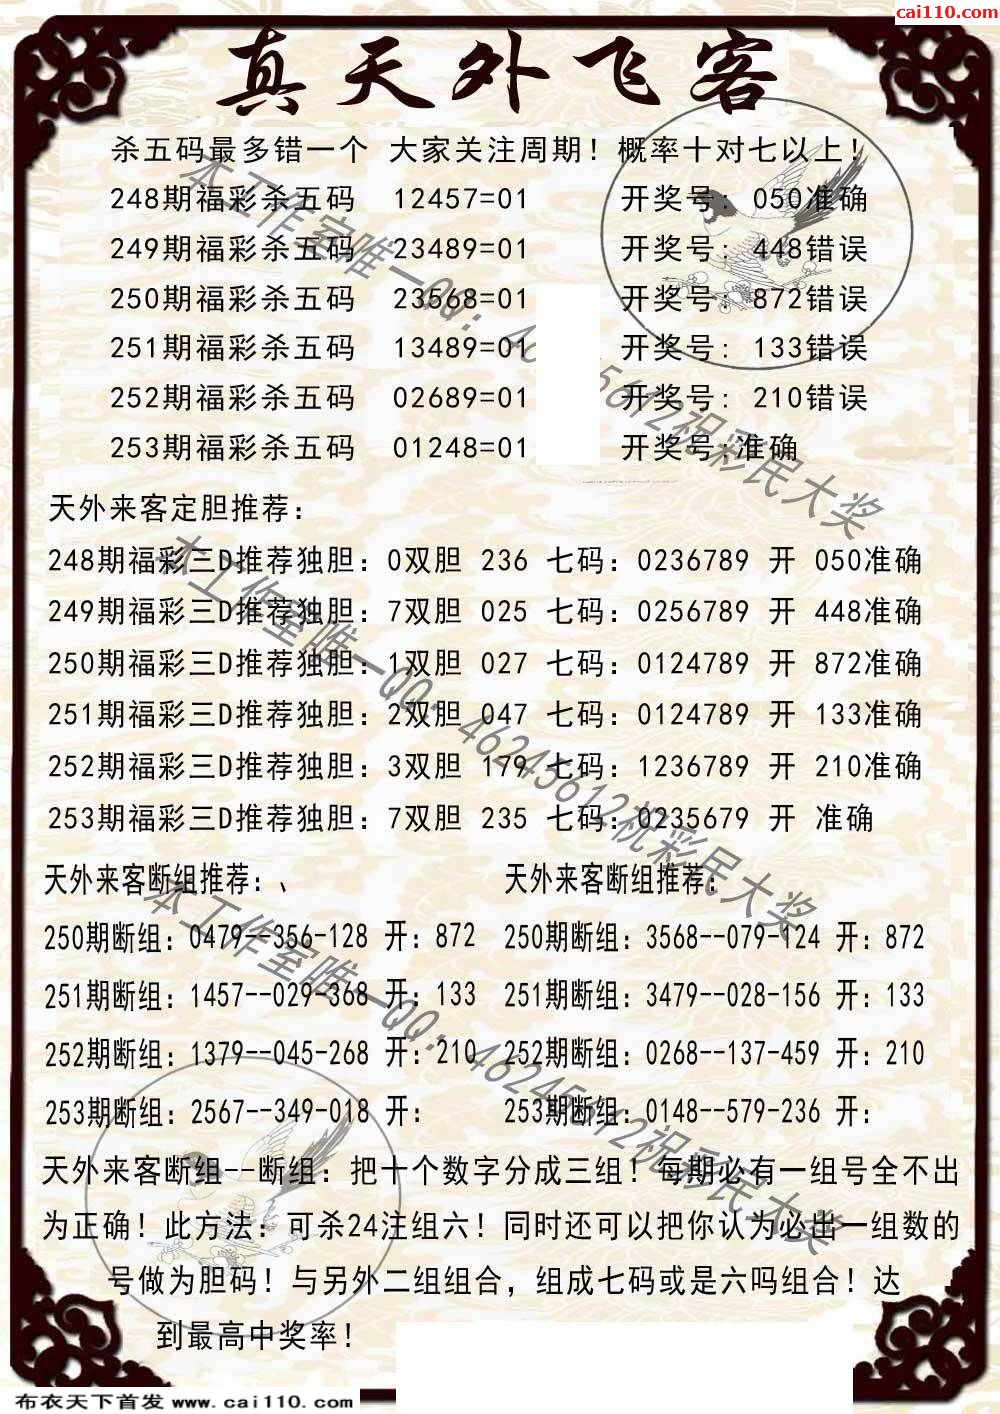 cai110.com
真天外飞客
杀五码最多错一个 大家关注周期！概率十对七以上！
248期福彩杀五码 12457=01 开奖号：050准确
249期福彩杀五码 23489=01 开奖号：448错误
250期福彩杀五码 23568=01 开奖号：872错误
251期福彩杀五码 13489=01 开奖号：133错误
252期福彩杀五码 02689=01 开奖号：210错误
253期福彩杀五码 01248=01 开奖号:准确
天外来客定胆推荐：
248期福彩三D推荐独胆：0双胆 236 七码：0236789 开 050准确
249期福彩三D推荐独胆：7双胆 025 七码：0256789 开 448准确
250期福彩三D推荐独胆：1双胆 027 七码：0124789 开 872准确
251期福彩三D推荐独胆：2双胆 047 七码：0124789 开 133准确
252期福彩三D推荐独胆：3双胆 179 七码：1236789 开 210准确
253期福彩三D推荐独胆：7双胆 235 七码：0235679 开 准确
天外来客断组推荐：、 天外来客断组推荐：
250期断组：0479--356-128 开：872 250期断组：3568--079-124 开：872
251期断组：1457--029-368 开：133 251期断组：3479--028-156 开：133
252期断组：1379--045-268 开：210 252期断组：0268--137-459 开：210
253期断组：2567--349-018 开： 253期断组：0148--579-236 开：
天外来客断组--断组：把十个数字分成三组！每期必有一组号全不出
为正确！此方法：可杀24注组六！同时还可以把你认为必出一组数的
号做为胆码！与另外二组组合，组成七码或是六吗组合！达
到最高中奖率！
本工作室唯一QQ：46245612祝彩民大奖
本工作室唯一QQ：46245612祝彩民大奖
布衣天下首发 www.cai110.com